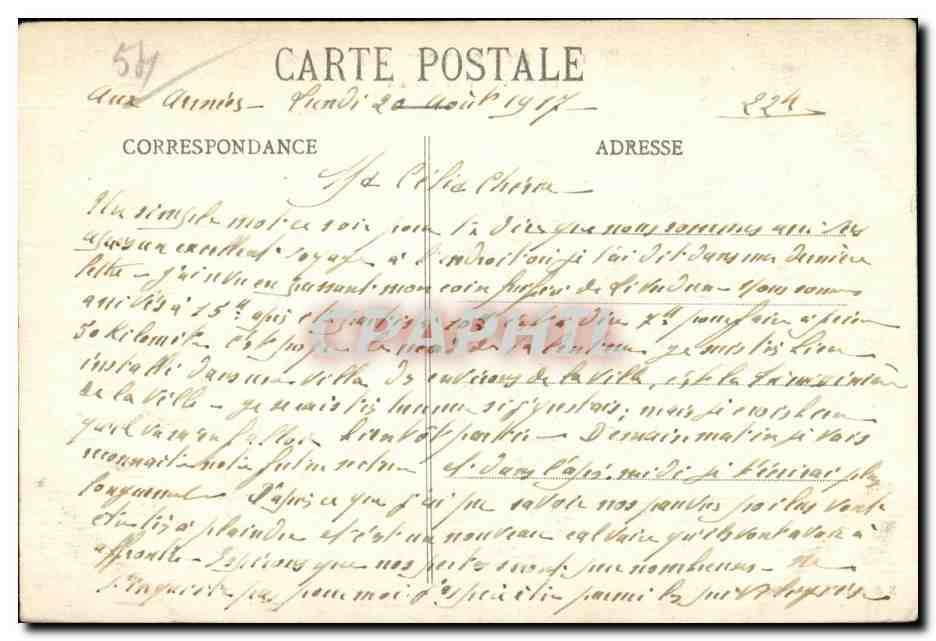 54
CARTE POSTALE
Aux Armées - Lundi 20 Août 1917 - 22h
CORRESPONDANCE
ADRESSE
Ma Célia Chérie
Un simple mot ce soir pour te dire que nous sommes arrivés
après un excellent voyage à l'endroit où je t'ai dit dans ma dernière
lettre - j'ai vu en passant mon coin de - Nous sommes
arrivés à 15h après à dire 7h pour faire à peine
50 kilomètres. C'est je suis très bien
installé dans une villa des environs de la ville, c'est la
de la ville - je serais très bien si j'y restais; mais je crois bien
qu'il va m'en falloir bientôt partir - Demain matin je vais
reconnaître notre futur secteur et dans l'après-midi je t'écrirai plus
longuement D'après ce que j'ai pu savoir nos pauvres poilus vont
être très à plaindre et c'est un nouveau calvaire qu'ils vont avoir à
affronter - Espérons que nos pertes seront peu nombreuses - Ne
t'inquiète pas pour moi parmi les
CPAPHIL